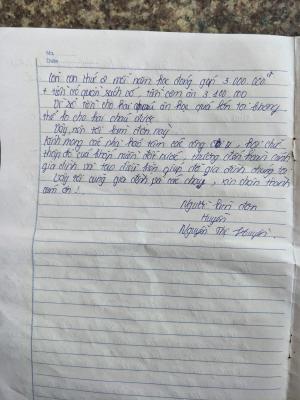 No.
Date
Còn con thứ 2 mỗi năm học đóng góp 3.000.000đ
+ tiền cô quần sách vở, tiền cơm ăn 3.100.000
Vì số tiền cho hai cháu ăn học quá lớn tôi không
thể lo cho hai cháu được.
Vậy nên tôi làm đơn này
Kính mong các nhà hảo tâm các ông, hội chữ
thập đỏ của tỉnh miền đất nước, thương đến hoàn cảnh
gia đình và tạo điều kiện giúp đỡ gia đình chúng tôi
Vậy tôi cùng gia đình và các cháu, xin chân thành
cảm ơn!
Người làm đơn
Huyền
Nguyễn Thị Huyền.